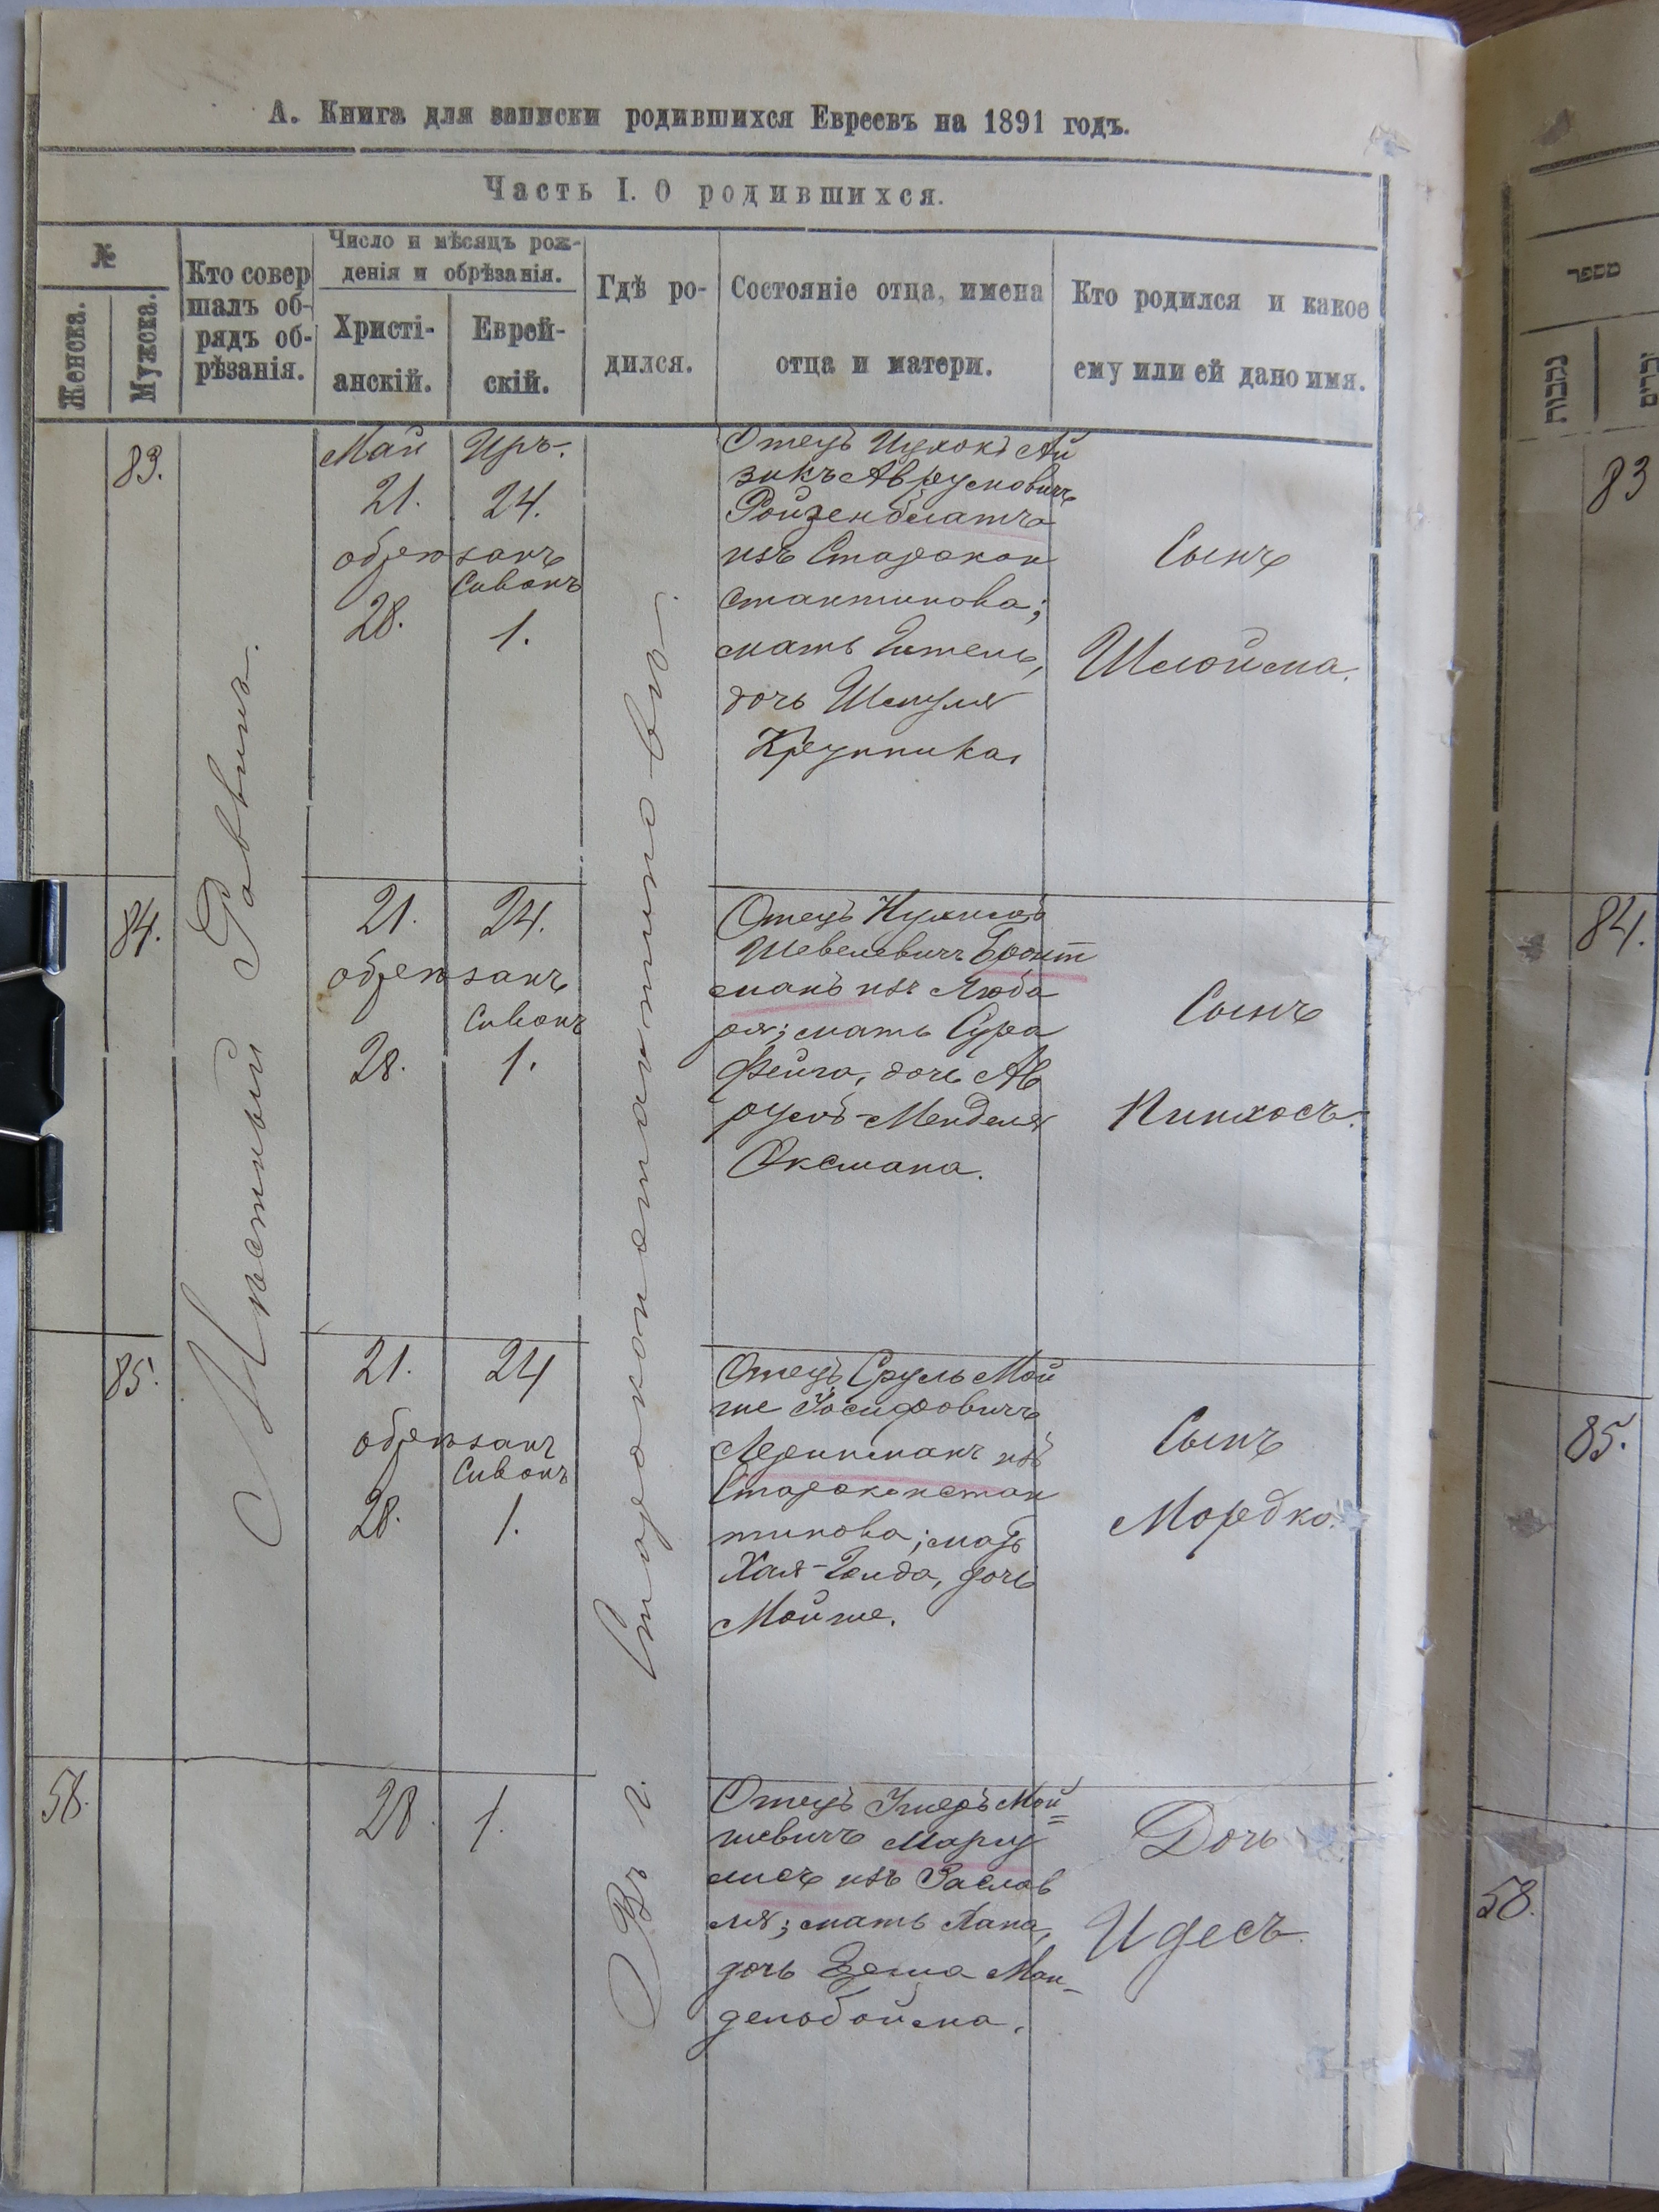 А. Книга для записки родившихся Евреевъ на 1891 годъ.
Часть I. О родившихся.
№
Женска.
Мужска.
Кто совер
шалъ об-
рядъ об-
рѣзанія.
Число и мѣсяцъ рож-
денія и обрѣзанія.
Христі-
анскій.
Еврей-
скій.
Гдѣ ро-
дился.
Состояніе отца, имена
отца и матери.
Кто родился и какое
ему или ей дано имя.
Мѣстный Раввинъ.
Въ г. Староконстантиновѣ.
83.
Май Иръ.
21. 24.
обрѣзанъ
Сиванъ
28. 1.
Отецъ Ицхокъ Ай
зикъ Аврумовичъ
Ройзенблатъ
изъ Старокон
стантинова;
мать Этель,
дочь Шмуля
Крупника
Сынъ
Шлойма.
84.
21. 24.
обрѣзанъ
Сиванъ
28. 1.
Отецъ Нухимъ
Шевелевичъ Бройт
манъ изъ Люба
ря; мать Сура
Фейга, дочь Ав
румъ-Менделя
Оксмана.
Сынъ
Пинхосъ.
85.
21. 24
обрѣзанъ
Сиванъ
28. 1.
Отецъ Сруль Мой
ше Іосифовичъ
Лерипманъ изъ
Староконстан
тинова; мать
Хая-Голда, дочь
Мойше.
Сынъ
Мордко.
58.
28. 1.
Отецъ Мой=
шевичъ Маргу
лисъ изъ Заслав
ля; мать Хана,
дочь Зельма Ман-
дельбойма.
Дочь
Идесъ.
מספר
נקבות
זכרים
83
84.
85.
58.